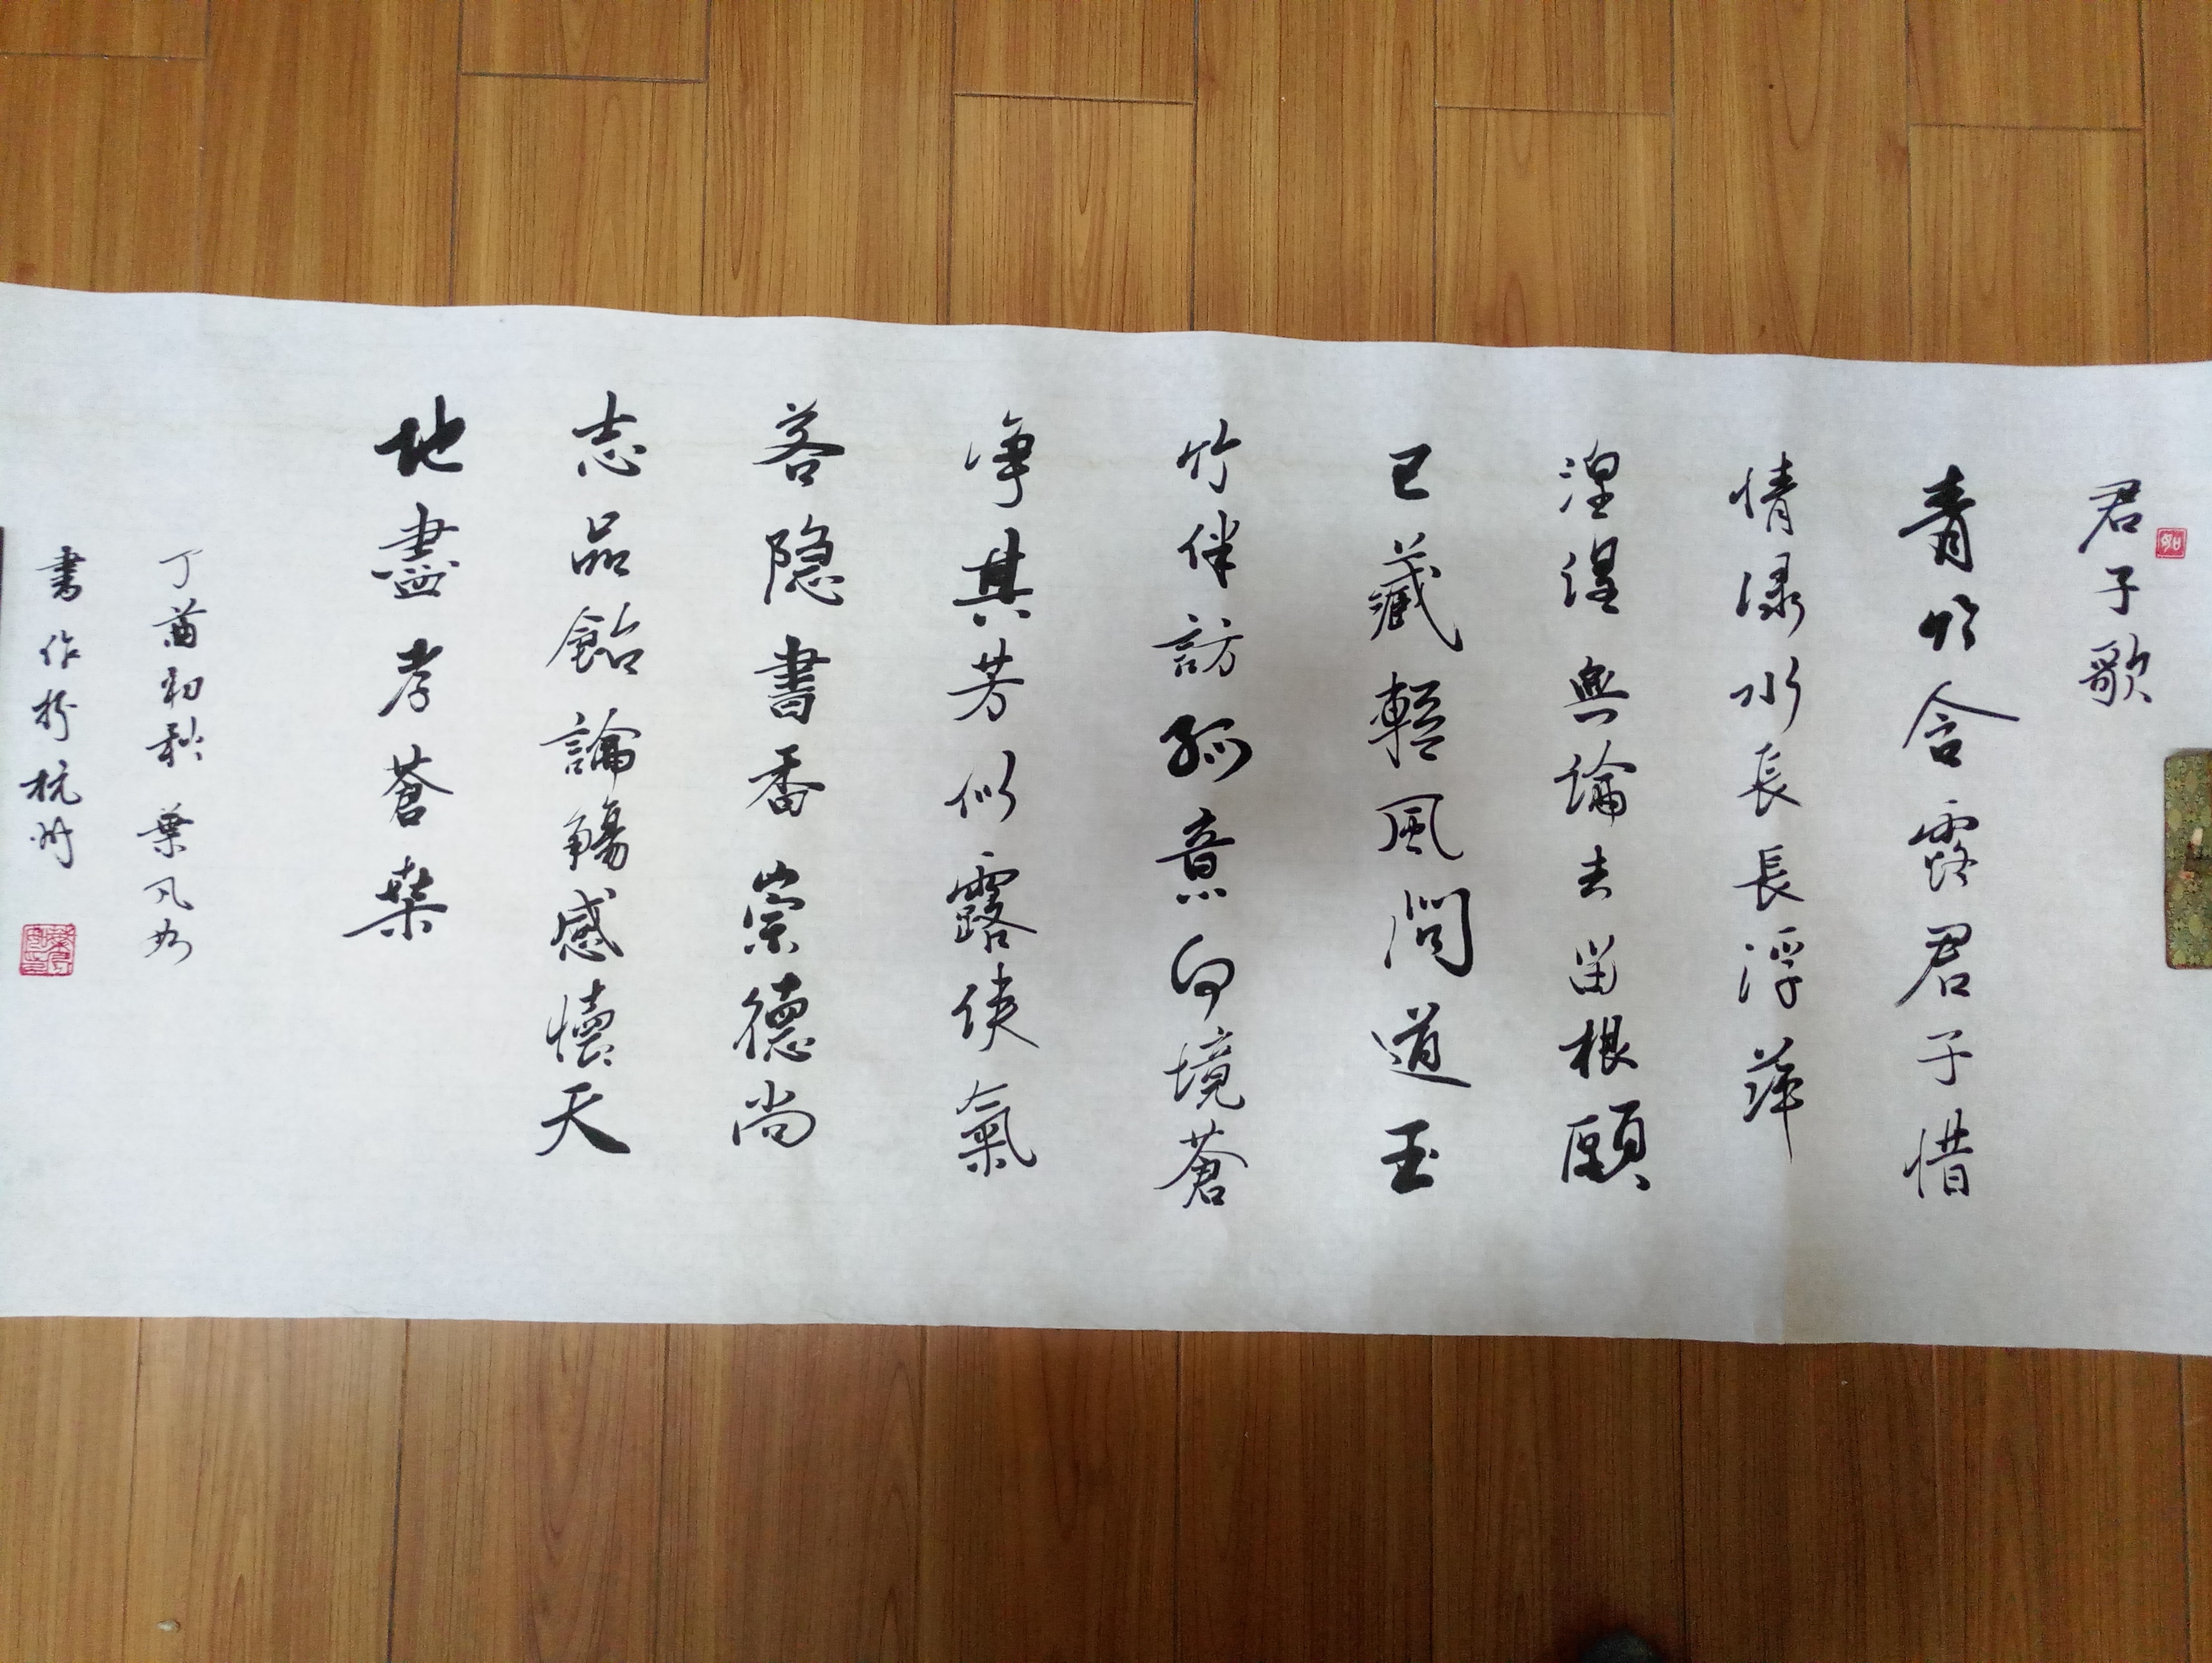 君子歌
青竹含露君子惜
情深水長長浮萍
涅涅無論去留根頤
已藏輕風問道玉
竹伴訪孤意向境蒼
净其芳似露使氣
茗隐書香崇德尚
志品飴論觴感懷天
地盡孝蒼桑
丁酉初秋 葉凡如
書作於杭州